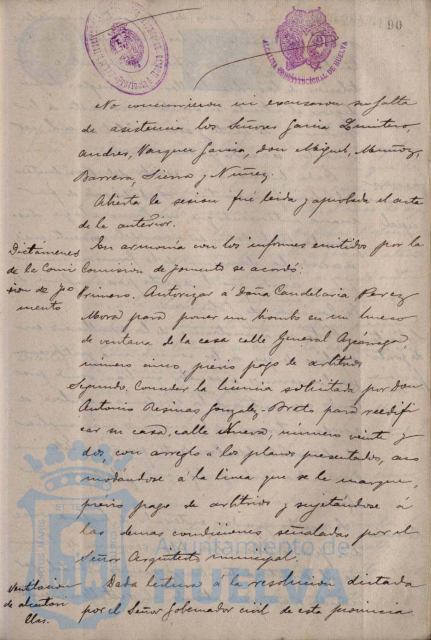 90
ALCALDIA CONSTITUCIONAL DE HUELVA
No concurrieron ni excusaron su falta
de asistencia los Señores Garcia Quintero,
Andres, Vazquez Garcia, don Miguel, Muñoz,
Barrera, Sierra y Nuñez.
Abierta la sesion fué leida y aprobada el acta
de la anterior.
Dictámenes
de la Comi
sion de Fo
mento
En armonia con los informes emitidos por la
Comision de Fomento se acordó:
Primero. Autorizar á doña Candelaria Perez
Mora para poner un zocalo en un hueco
de ventana de la casa calle General Azcárraga
número cinco, previo pago de arbitrios
Segundo. Conceder la licencia solicitada por Don
Antonio Resinas Gonzalez-Brito para reedifi
car su casa, calle Nueva, número veinte y
dos, con arreglo á los planos presentados, aco
modandose á la linea que se le marque,
previo pago de arbitrios y sujetándose á
las demas condiciones señaladas por el
Señor Arquitecto municipal.
Ventilacion
de alcantari
llas.
Dada lectura á la resolucion dictada
por el Señor Gobernador civil de esta provincia
Ayuntamiento de
HUELVA